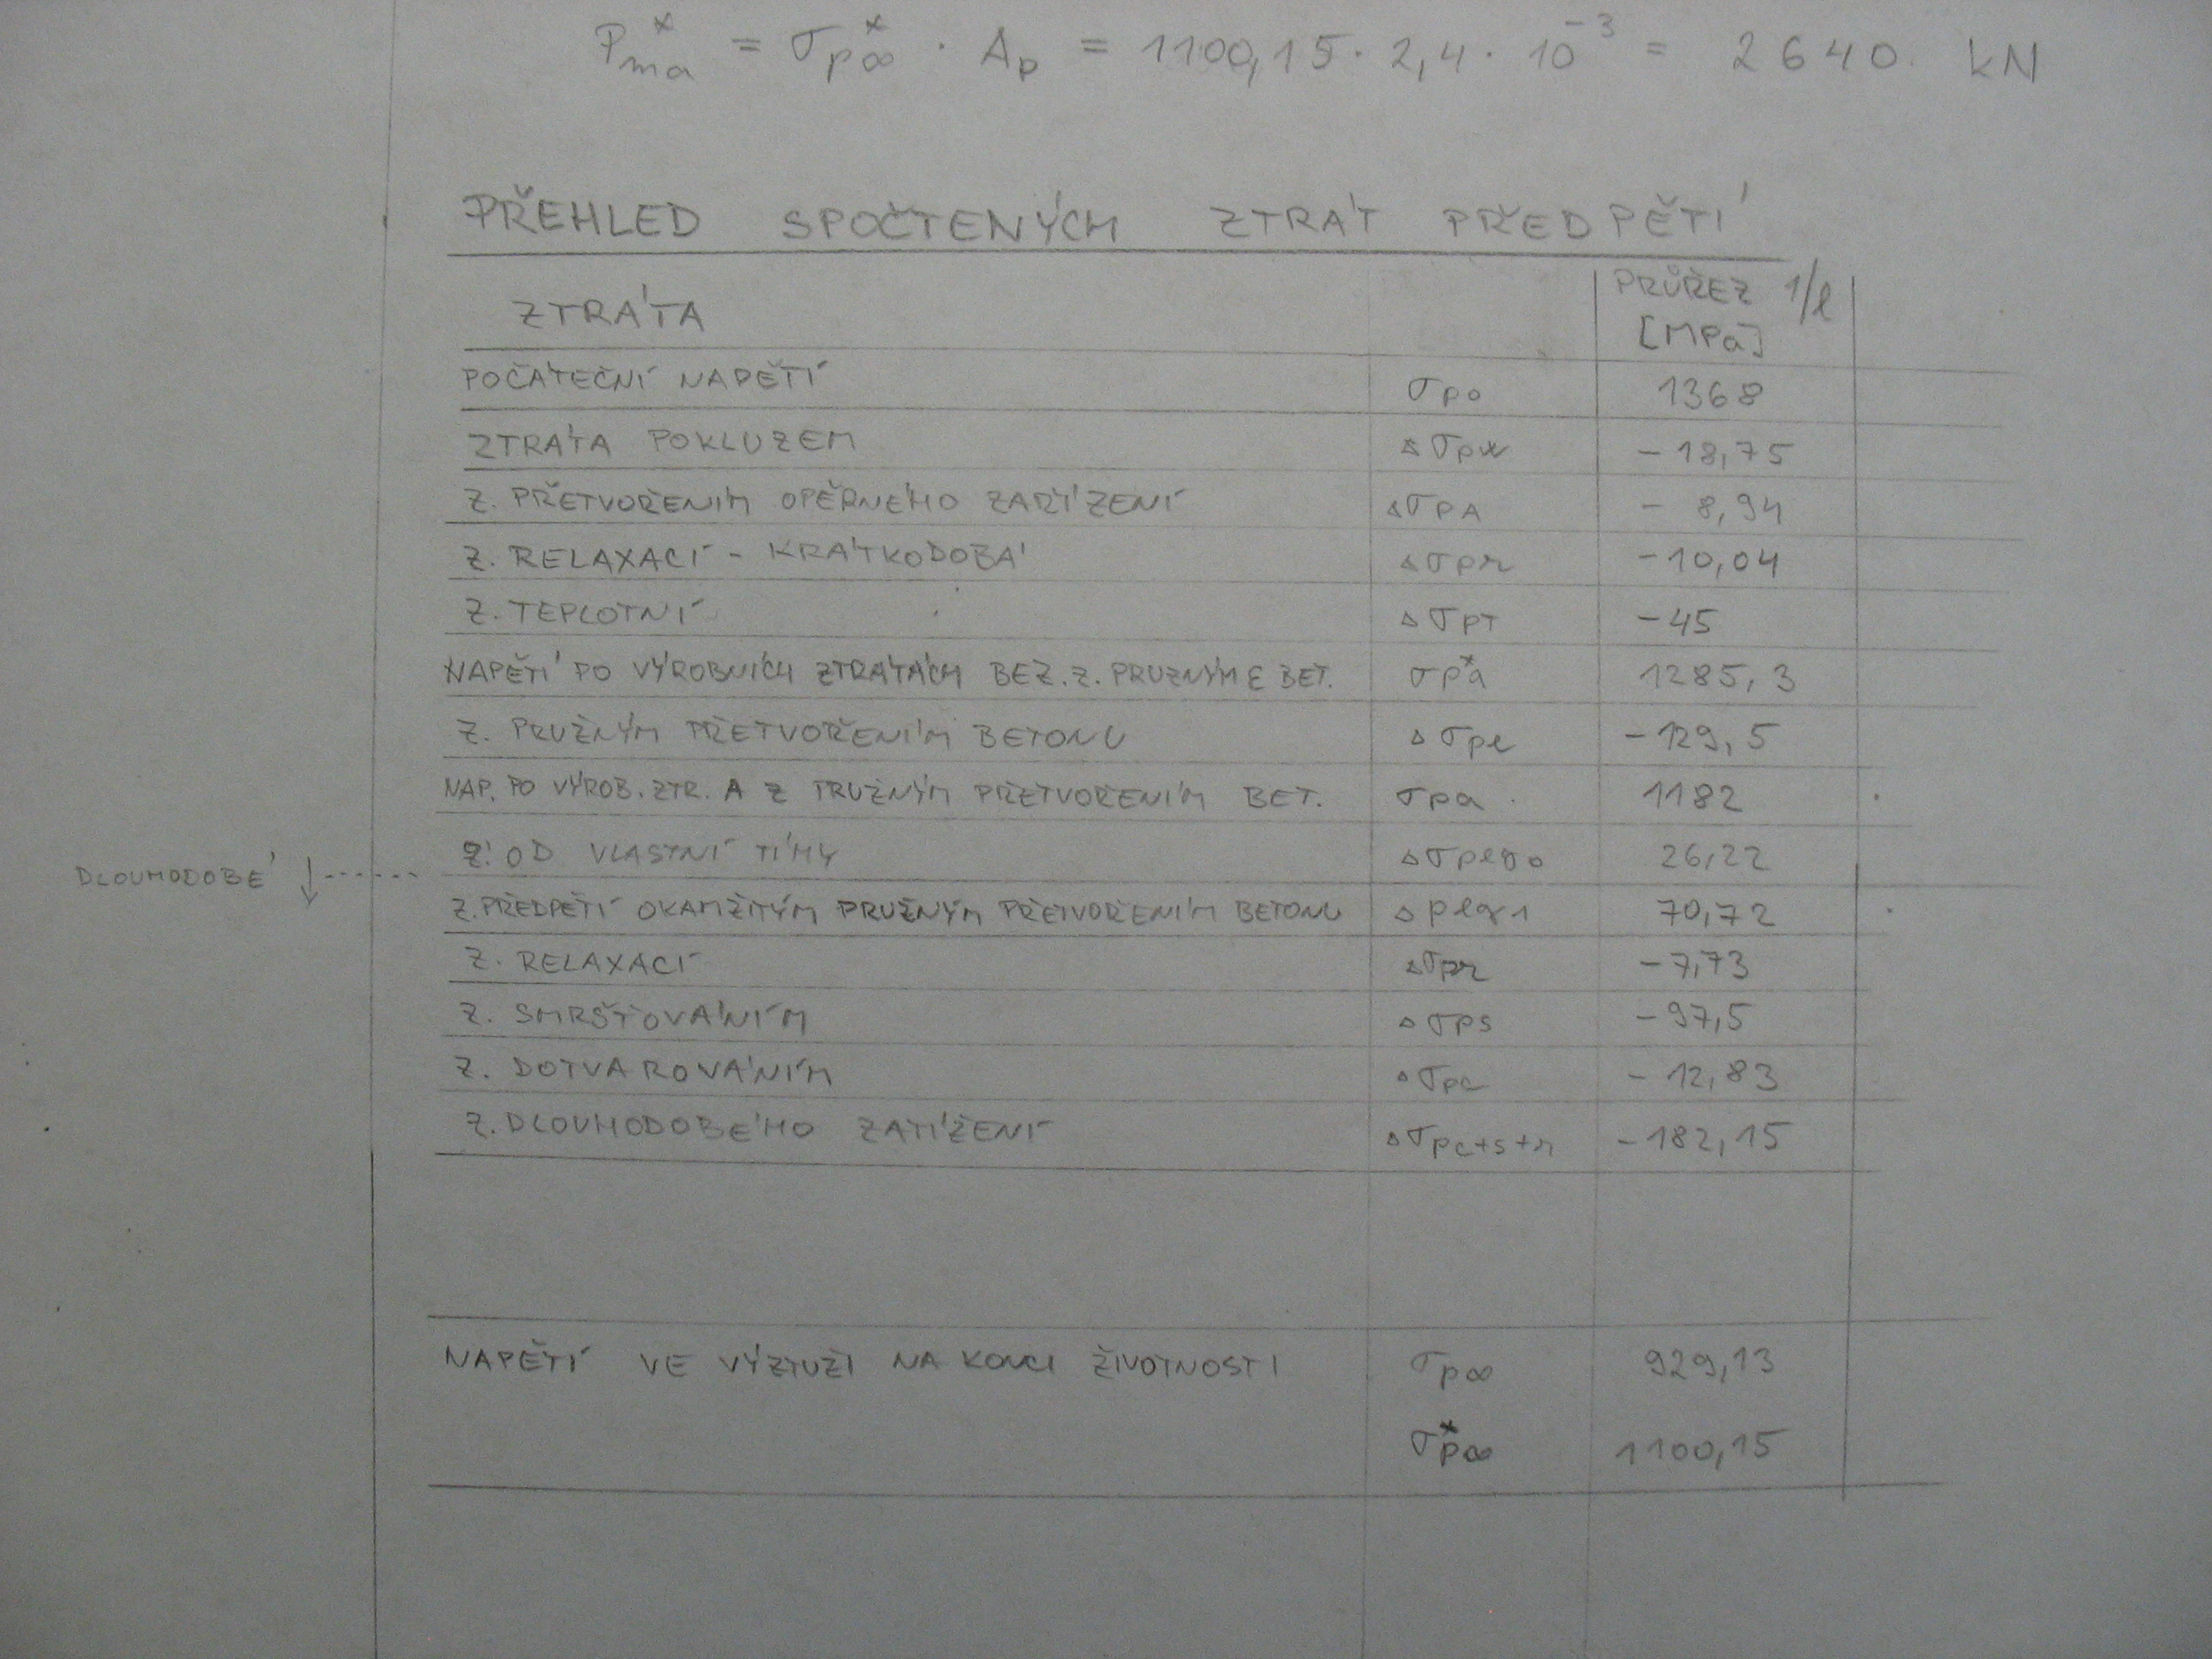 P*ma = σ*p∞ · Ap = 1100,15 · 2,4 · 10⁻³ = 2640 kN
PŘEHLED SPOČTENÝCH ZTRÁT PŘEDPĚTÍ
ZTRÁTA PRŮŘEZ 1/l [MPa]
POČÁTEČNÍ NAPĚTÍ σpo 1368
ZTRÁTA POKLUZEM Δσpw -18,75
Z. PŘETVOŘENÍM OPĚRNÉHO ZAŘÍZENÍ ΔσpA - 8,94
Z. RELAXACÍ - KRÁTKODOBÁ Δσpr -10,04
Z. TEPLOTNÍ ΔσpT -45
NAPĚTÍ PO VÝROBNÍCH ZTRÁTÁCH BEZ. Z. PRUŽNÝM ε BET. σ*pa 1285,3
Z. PRUŽNÝM PŘETVOŘENÍM BETONU Δσpe -129,5
NAP. PO VÝROB. ZTR. A Z PRUŽNÝM PŘETVOŘENÍM BET. σpa 1182
Z. OD VLASTNÍ TÍHY Δσpeg0 26,22
DLOUHODOBÉ ↓
Z. PŘEDPĚTÍ OKAMŽITÝM PRUŽNÝM PŘETVOŘENÍM BETONU Δpeg1 70,72
Z. RELAXACÍ Δσpr -7,73
Z. SMRŠŤOVÁNÍM Δσps -97,5
Z. DOTVAROVÁNÍM Δσpc -12,83
Z. DLOUHODOBÉHO ZATÍŽENÍ Δσpc+s+r -182,15
NAPĚTÍ VE VÝZTUŽI NA KONCI ŽIVOTNOSTI σp∞ 929,13
σ*p∞ 1100,15